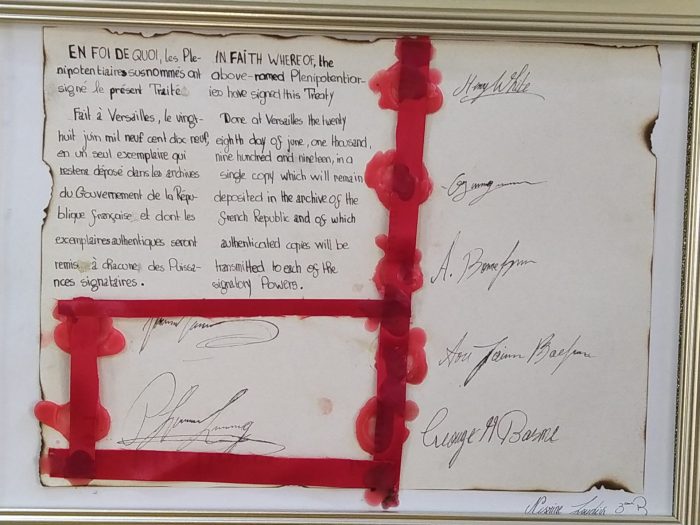 EN FOI DE QUOI, les Ple-
nipotentiaires susnommés ont
signé le présent Traité.
Fait à Versailles, le vingt-
huit juin mil neuf cent doc neuf,
en un seul exemplaire qui
restera déposé dans les archives
du Gouvernement de la Répu-
blique française et dont les
exemplaires authentiques seront
remis à chacune des Puissa-
nces signataires.
IN FAITH WHEREOF, the
above-named Plenipotentiar-
ies have signed this Treaty
Done at Versailles the twenty
eighth day of june, one thousand,
nine hundred and nineteen, in a
single copy which will remain
deposited in the archive of the
french Republic and of which
authenticated copies will be
transmitted to each of the
signatory Powers.
Henry White
A.
George